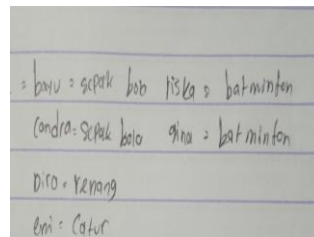 : bayu = sepak bob riska = batminton
Candra = sepak bola gina = batminton
Dico = renang
emi = Catur